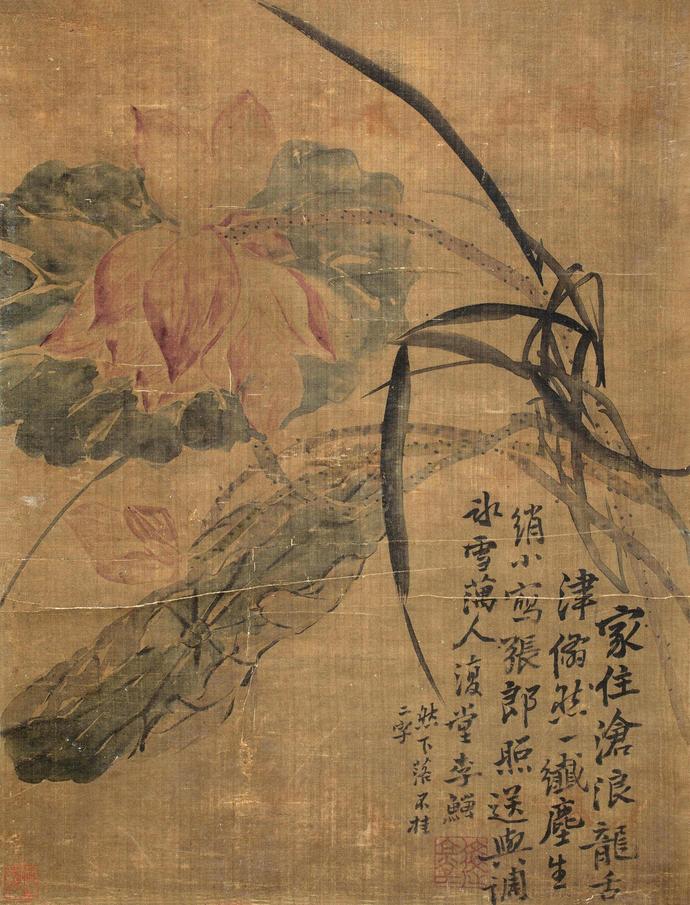 家住滄浪龍舌
津翛然一纖塵生
綃小寫張郎照送與調
氷雪藕人復堂李鱓
然下落不挂
二字